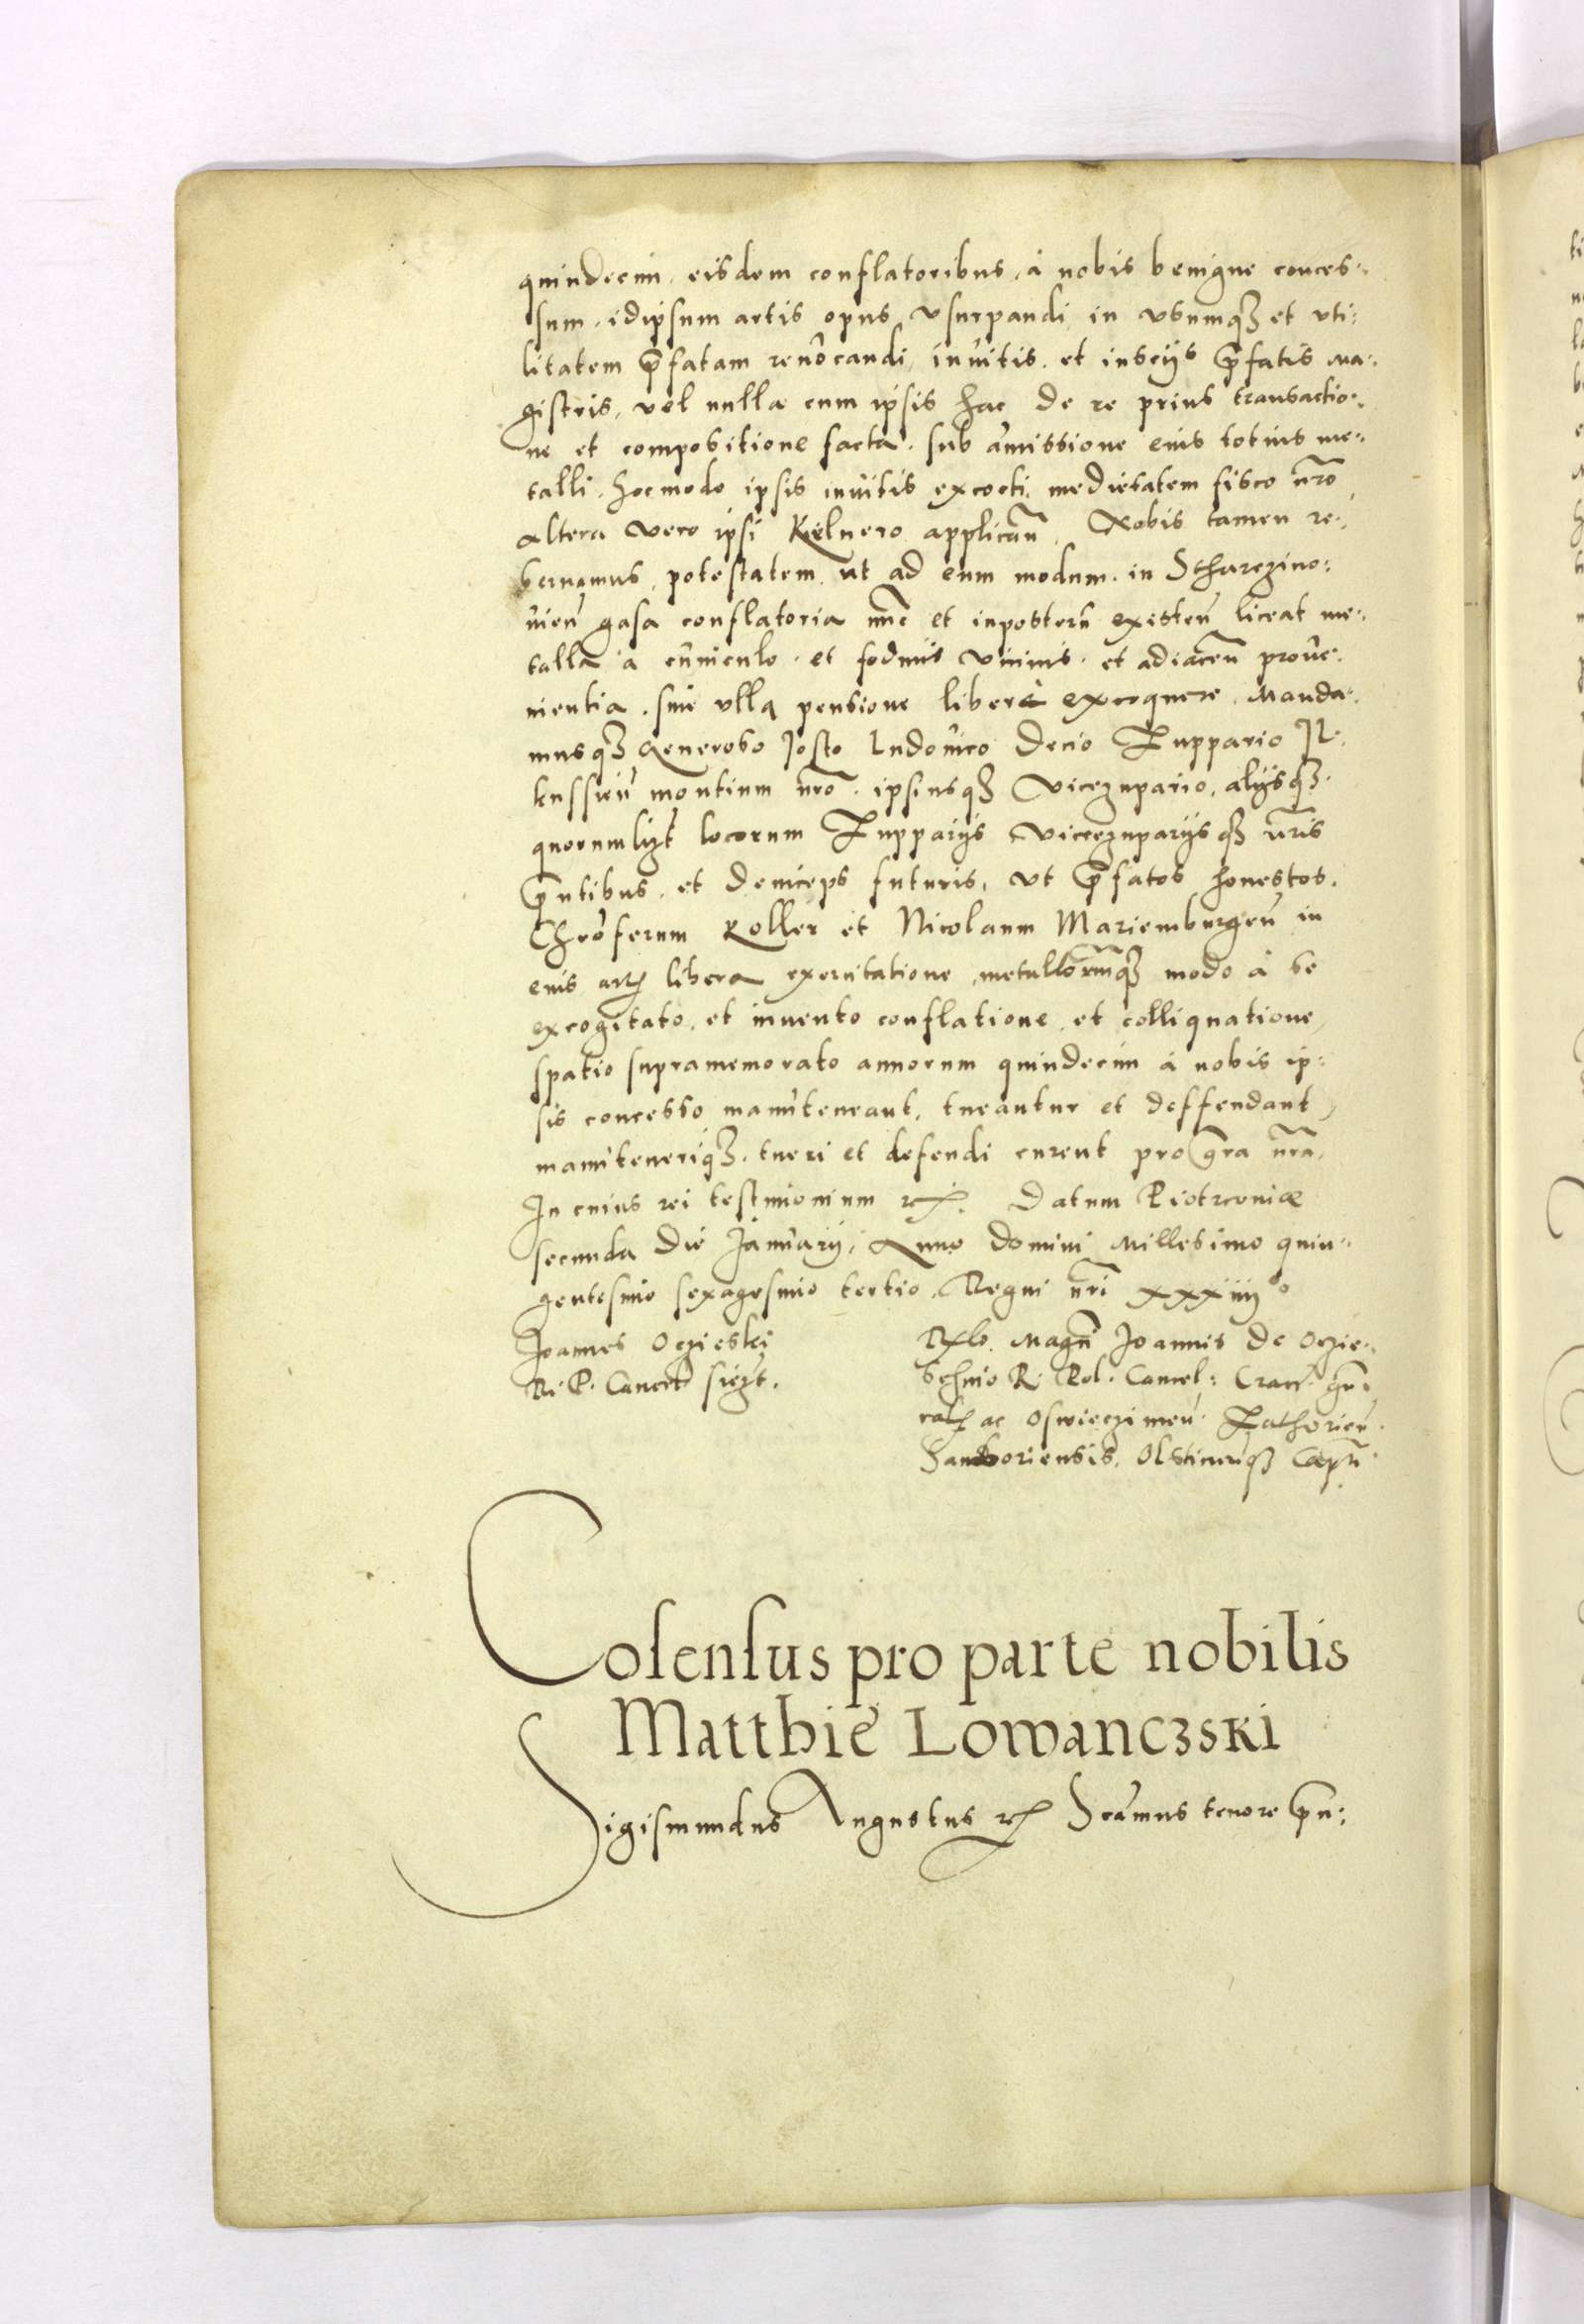 quindecim, eisdem conflatoribus, à nobis benigne conces-
sum, idipsum artis opus usurpandi, in usumq3 et uti-
litatem p̄fatam revocandi, invitis et insciis p̄fatis Ma-
gistris, vel nulla cum ipsis hac de re prius transactio-
ne et compositione facta, sub amissione eius totius me-
talli, hocmodo ipsis invitis excocti, medietatem fisco nr̄o
altera vero ipsi Kelnero applicān. Nobis tamen re-
servamus potestatem, ut ad eum modum, in Scharczino-
vień gasa conflatoria nūc et inposterū existeń liceat me-
talla a cuniculo et fodinis vicinis et adiaceń prove-
nientia, sine ulla pensione liberè excoquere. Manda-
musq3 Generoso Josto Ludovico Decio Zuppario Il-
kussień montium nr̄o, ipsiusq3 Vicezupario, alijsq3
quorumlizt locorum Zupparijs Vicezuparijsq3 nr̄is
p̄ntibus et deinceps futuris, ut p̄fatos honestos
Chrōferum Koller et Nicolaum Mariemburgeń in
eius libera exercitatione, metallorūmq3 modo à se
excogitato, et invento conflatione et colliquatione,
spatio supramemorato annorum quindecim à nobis ip-
sis concesso manuteneant, tueantur et deffendant,
manuteneriq3, tueri et defendi curent pro gr̄a nr̄a,
In cuius rei testimonium Datum Piotrconiæ
secunda die Januarij, Anno Domini Millesimo quin-
gentesimo sexagesimo tertio, Regni nr̄i xxxiiij°
Joannes Oczieski
R. P. Cancel:
Magń Joannis de Oczie-
schino R. Pol. Cancel: Crac. gn̄e-
ral ac Oswieczimeń Zathorień
Samboriensis, Olstinenq3 Capn̄
Cosensus pro parte nobilis
Matthie Lowanczski
Sigismundus Augustus Scāmus tenore p̄n-